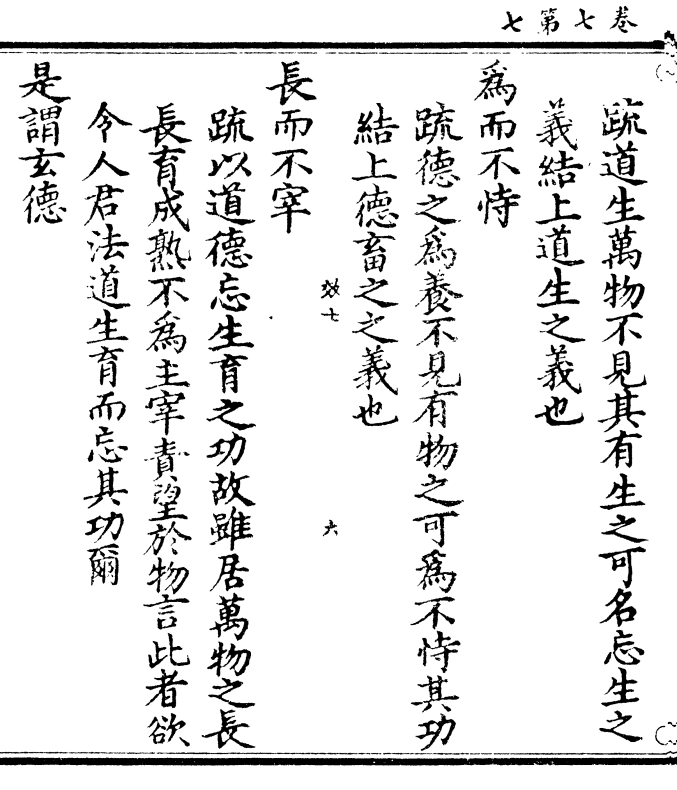 卷七第七
疏道生萬物不見其有生之可名忘生之
義結上道生之義也
爲而不恃
疏德之爲養不見有物之可爲不恃其功
結上德畜之之義也
效七 六
長而不宰
疏以道德忘生育之功故雖居萬物之長
長育成熟不爲主宰責望於物言此者欲
令人君法道生育而忘其功爾
是謂玄德